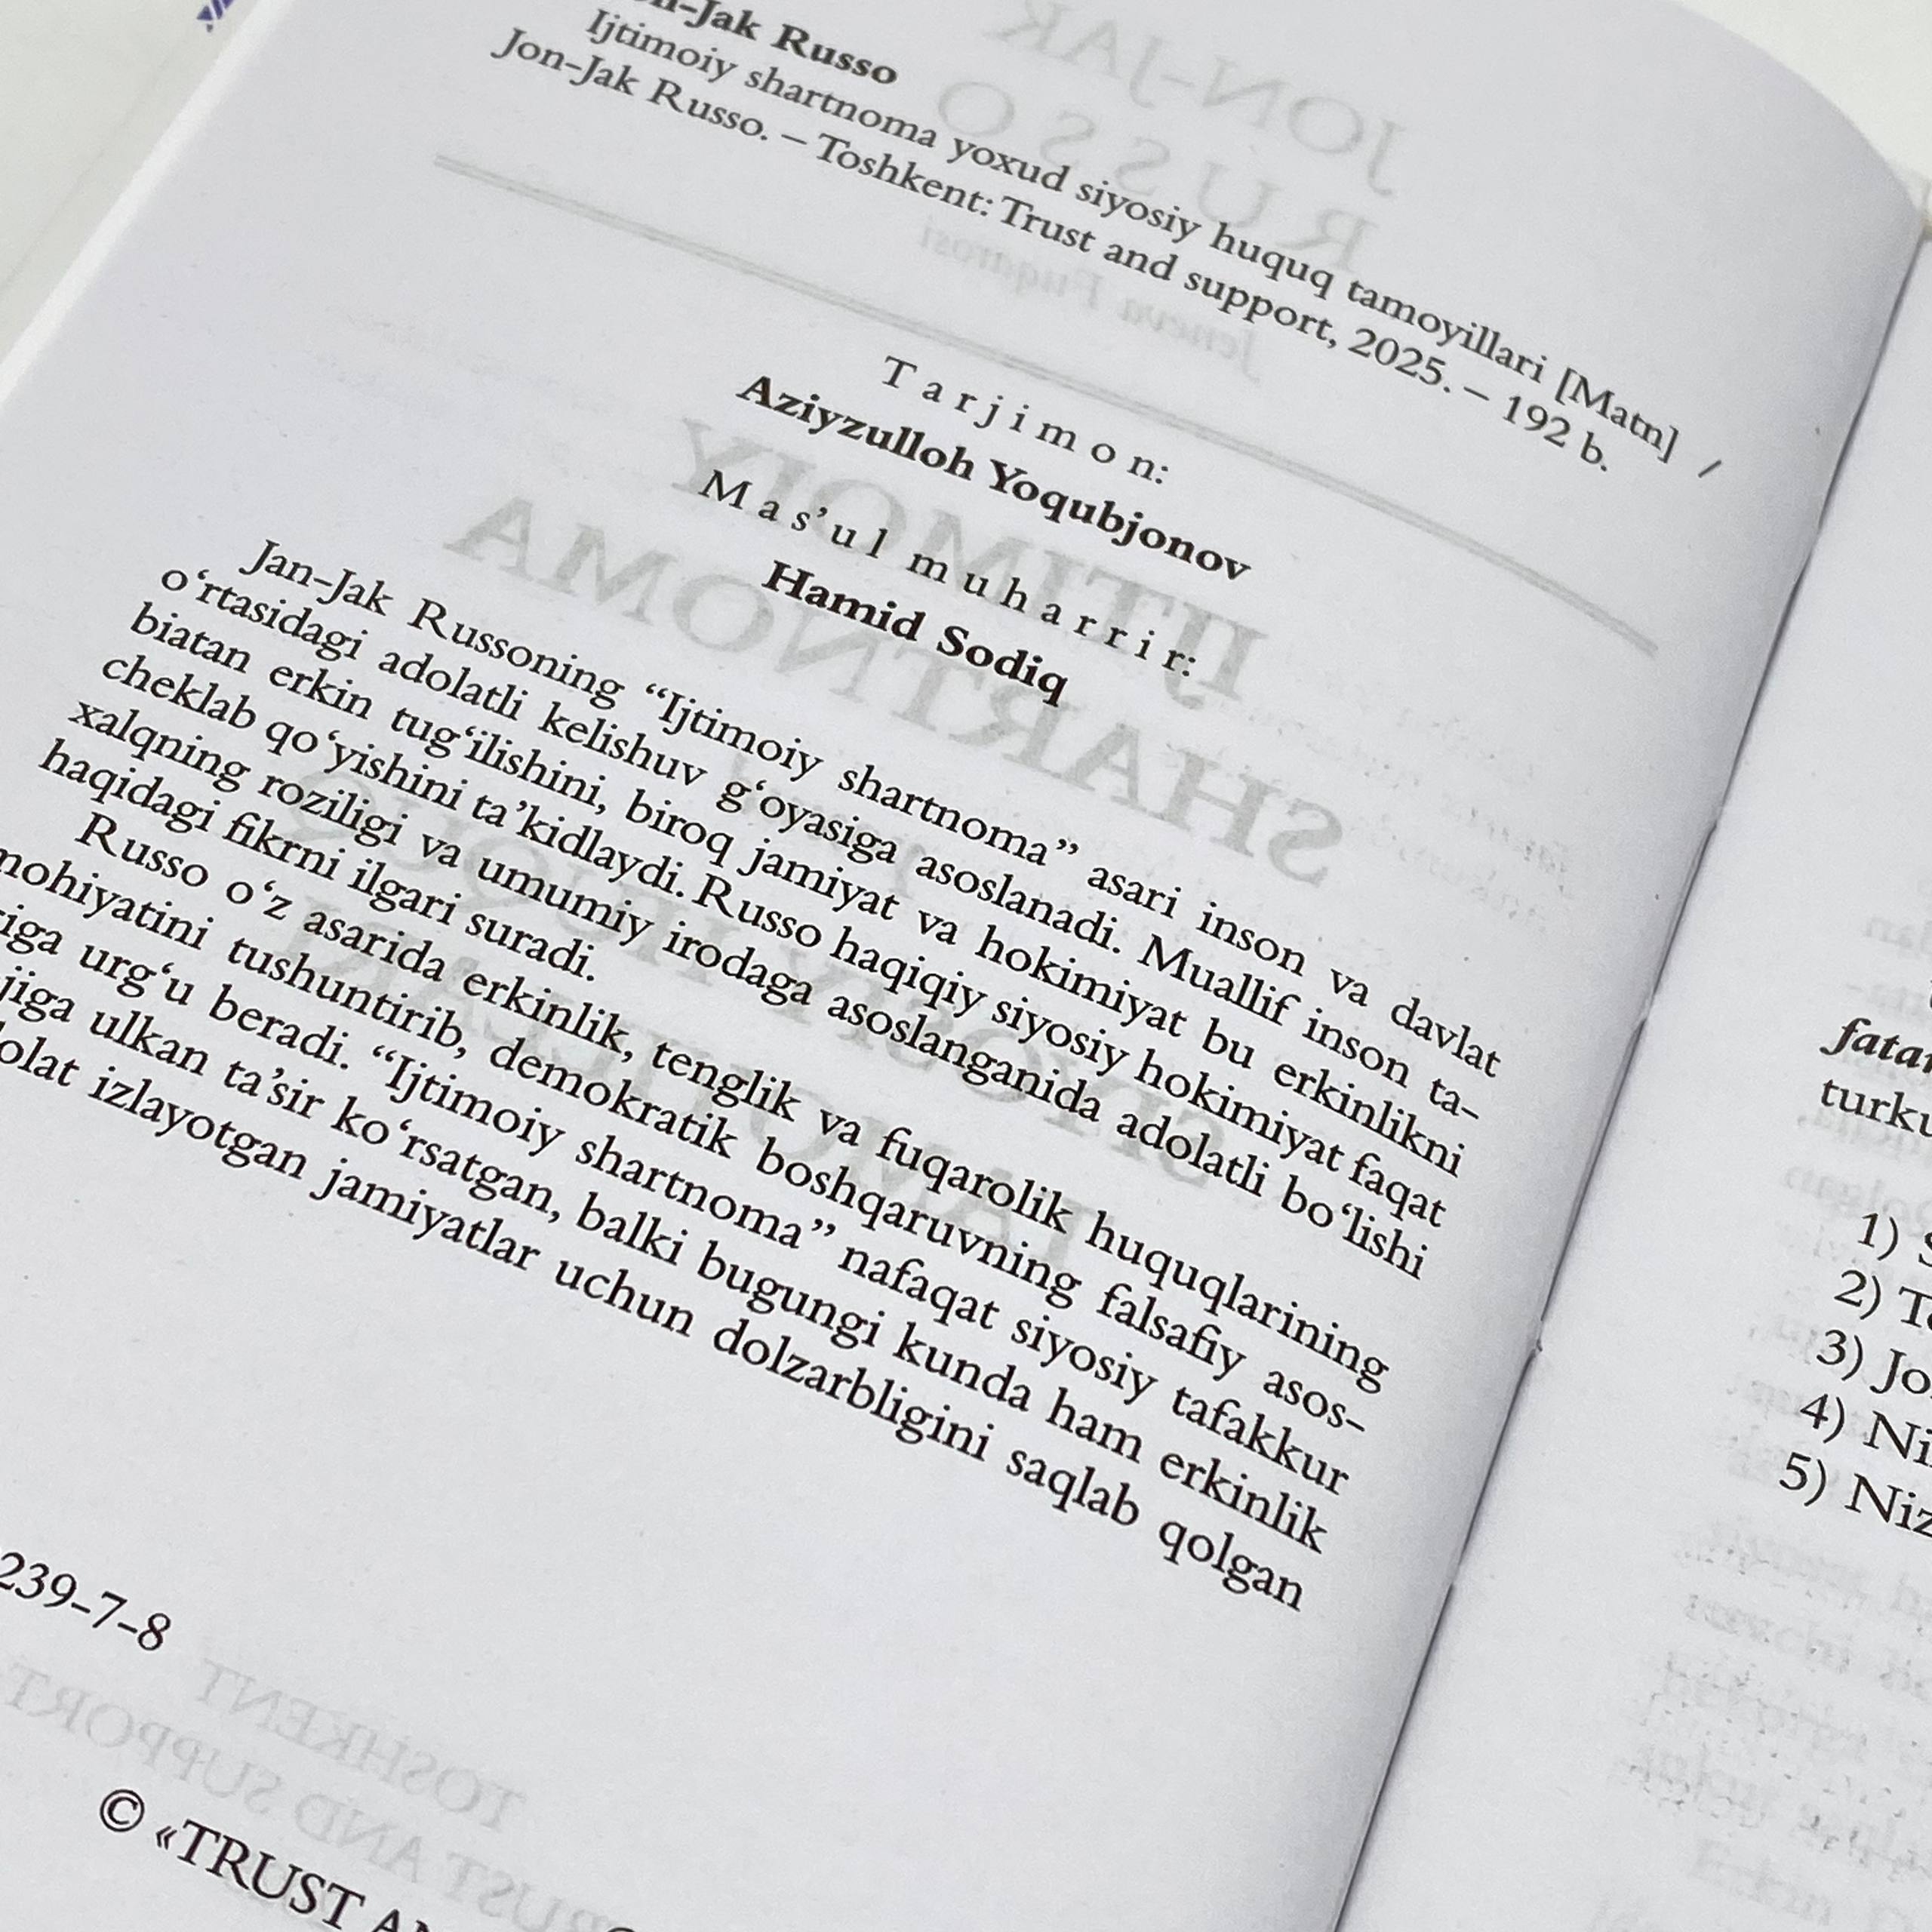 Jak Russo
Ijtimoiy shartnoma yoxud siyosiy huquq tamoyillari [Matn] /
Jon-Jak Russo. – Toshkent: Trust and support, 2025. – 192 b.
Tarjimon:
Aziyzulloh Yoqubjonov
Mas’ul muharrir:
Hamid Sodiq
Jan-Jak Russoning “Ijtimoiy shartnoma” asari inson va davlat
o‘rtasidagi adolatli kelishuv g‘oyasiga asoslanadi. Muallif inson ta-
biatan erkin tug‘ilishini, biroq jamiyat va hokimiyat bu erkinlikni
cheklab qo‘yishini ta’kidlaydi. Russo haqiqiy siyosiy hokimiyat faqat
xalqning roziligi va umumiy irodaga asoslanganida adolatli bo‘lishi
haqidagi fikrni ilgari suradi.
Russo o‘z asarida erkinlik, tenglik va fuqarolik huquqlarining
mohiyatini tushuntirib, demokratik boshqaruvning falsafiy asos-
urg‘u beradi. “Ijtimoiy shartnoma” nafaqat siyosiy tafakkur
ulkan ta’sir ko‘rsatgan, balki bugungi kunda ham erkinlik
izlayotgan jamiyatlar uchun dolzarbligini saqlab qolgan
239-7-8
© «TRUST
JON-JAK
RUSSO
Jeneva Fuqarosi
IJTIMOIY
SHARTNOMA
TOSHKENT
TRUST AND SUPPORT
turku
1)
2)
3)
4)
5)